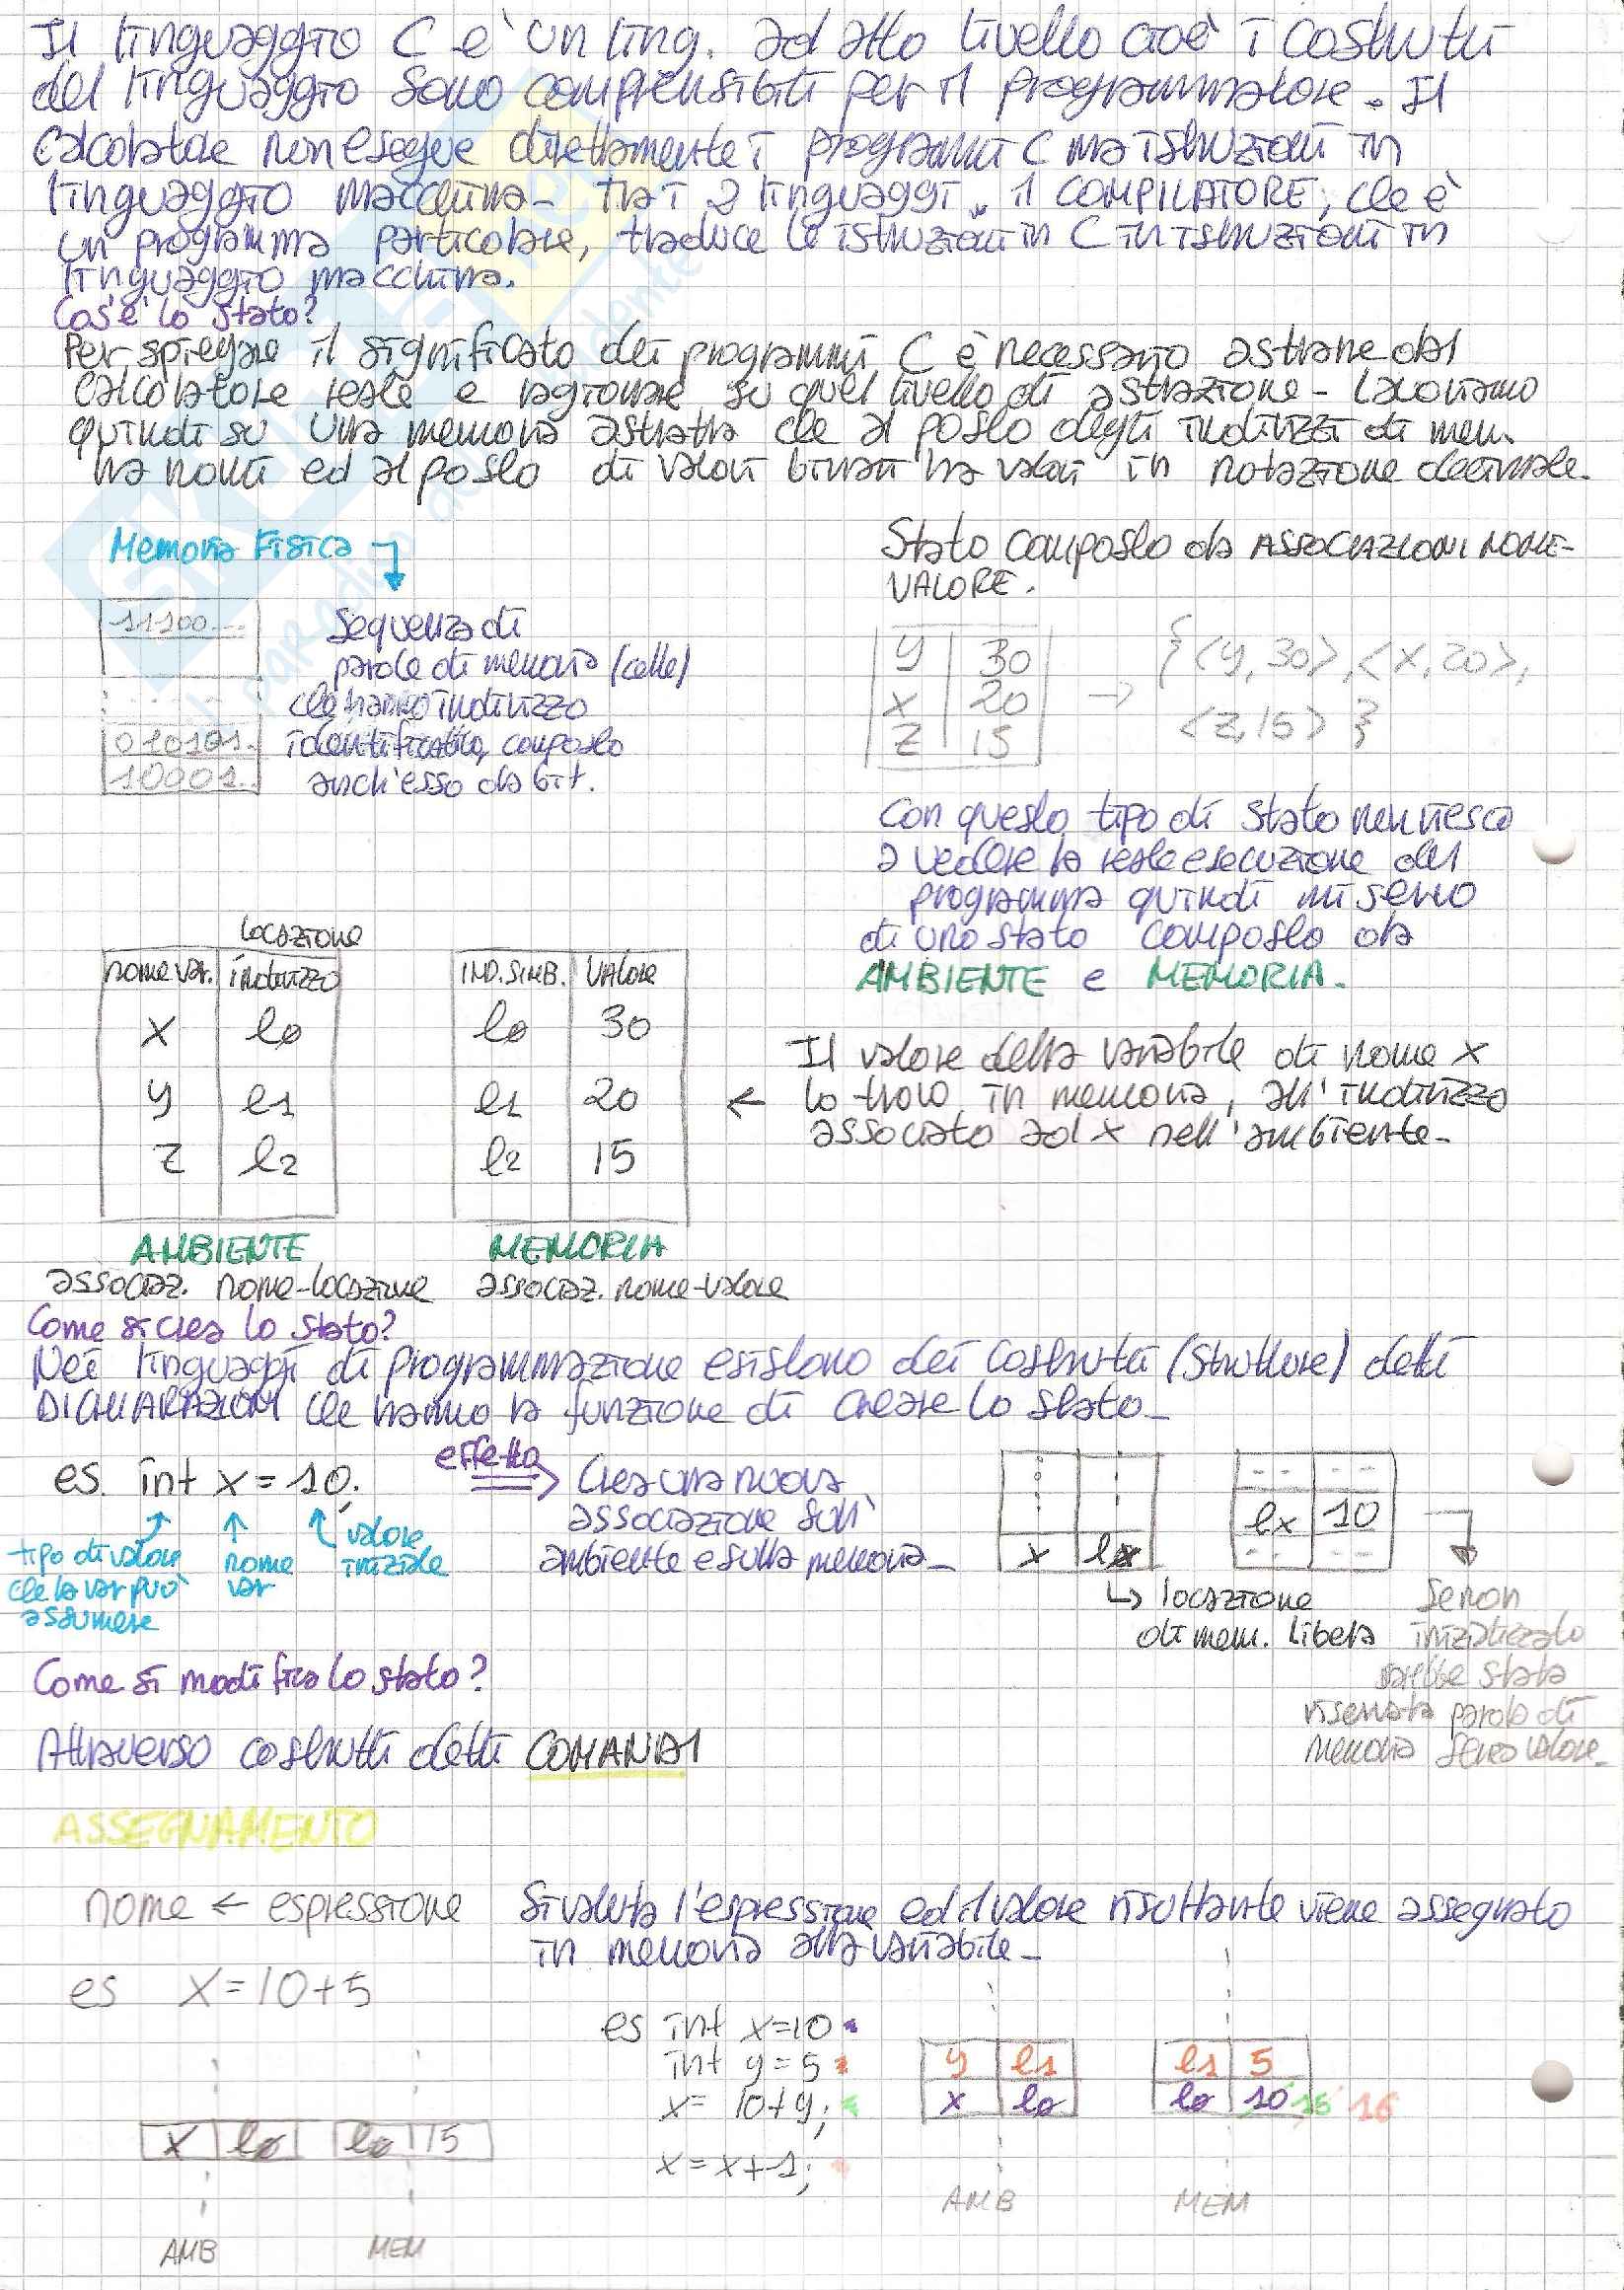 Il linguaggio C e' un ling. ad alto livello cioè i costrutti
del linguaggio sono comprensibili per il programmatore. Il
calcolatore non esegue direttamente i programmi C ma istruzioni in
linguaggio macchina - tra i 2 linguaggi il COMPILATORE, che è
un programma particolare, traduce le istruzioni in C in istruzioni in
linguaggio macchina.
Cos'è lo stato?
Per spiegare il significato dei programmi C è necessario astrarre dal
calcolatore reale e ragionare su quel livello di astrazione - Lavoriamo
quindi su una memoria astratta che al posto degli indirizzi di mem.
ha nomi ed al posto di valori binari ha valori in notazione decimale.
Memoria Fisica
11100...
010101.
10001..
Sequenza di
parole di memoria (celle)
che hanno indirizzo
identificativo, composto
anch'esso da bit.
Stato composto da ASSOCIAZIONI NOME-
VALORE.
y 30
x 20
z 15
→ {<y,30>,<x,20>,
<z,15>}
Con questo tipo di stato non riesco
a vedere la reale esecuzione del
programma quindi mi servo
di uno stato composto da
AMBIENTE e MEMORIA.
locazione
nome var. indirizzo
x l0
y l1
z l2
AMBIENTE
associaz. nome-locazione
IND.SIMB. VALORE
l0 30
l1 20
l2 15
MEMORIA
associaz. nome-valore
← Il valore della variabile di nome x
lo trovo in memoria, all'indirizzo
associato ad x nell'ambiente -
Come si crea lo stato?
Nei linguaggi di programmazione esistono dei costrutti (strutture) detti
DICHIARAZIONI che hanno la funzione di creare lo stato -
es. int x = 10;
tipo di valore
che la var può
assumere
nome
var
valore
iniziale
effetto
Crea una nuova
associazione sull'
ambiente e sulla memoria -
x lx
lx 10
↳ locazione
di mem. libera
Se non
inizializzato
sarebbe stata
riservata parola di
memoria senza valore -
Come si modifica lo stato?
Attraverso costrutti detti COMANDI
ASSEGNAMENTO
nome ← espressione
Si valuta l'espressione ed il valore risultante viene assegnato
in memoria alla variabile -
es x = 10+5
x l0 l0 15
AMB MEM
es int x=10
int y = 5
x = 10+y;
x = x+1;
y l1
x l0
AMB
l1 5
l0 10 15 16
MEM